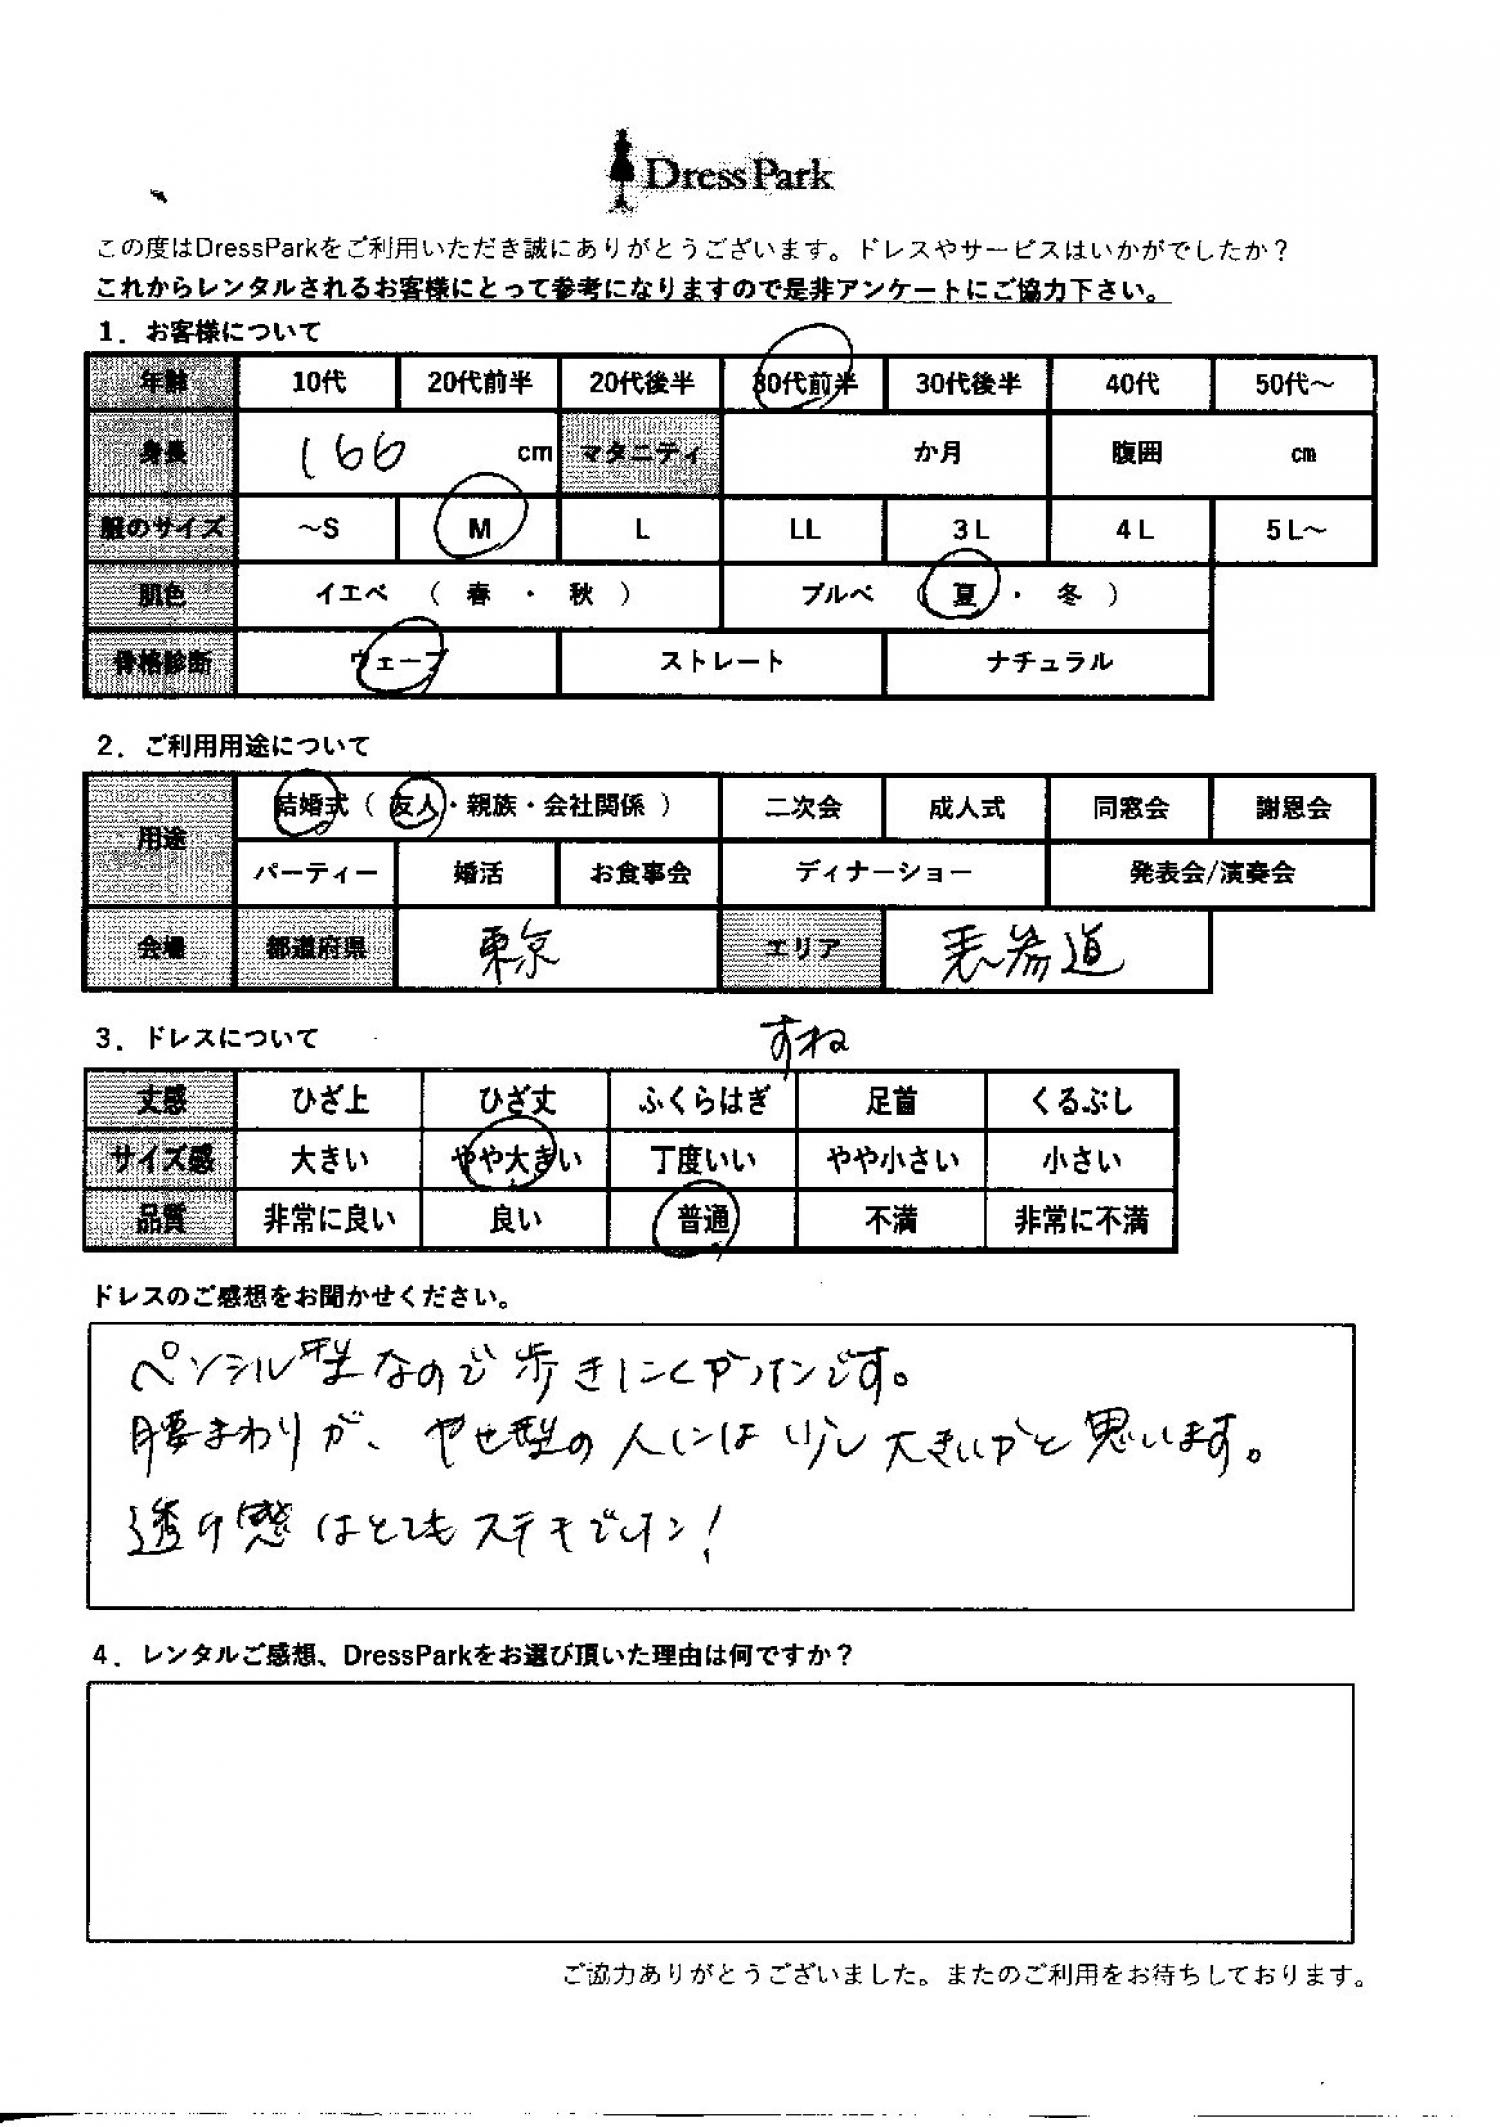 DressPark
この度はDressParkをご利用いただき誠にありがとうございます。ドレスやサービスはいかがでしたか？
これからレンタルされるお客様にとって参考になりますので是非アンケートにご協力下さい。
1．お客様について
年齢 10代 20代前半 20代後半 30代前半 30代後半 40代 50代～
身長 166 cm マタニティ か月 腹囲 cm
服のサイズ ～S M L LL 3L 4L 5L～
肌色 イエベ （ 春 ・ 秋 ） ブルベ （ 夏 ・ 冬 ）
骨格診断 ウェーブ ストレート ナチュラル
2．ご利用用途について
用途 結婚式（ 友人・親族・会社関係 ） 二次会 成人式 同窓会 謝恩会
パーティー 婚活 お食事会 ディナーショー 発表会/演奏会
会場 都道府県 東京 エリア 表参道
3．ドレスについて
すね
丈感 ひざ上 ひざ丈 ふくらはぎ 足首 くるぶし
サイズ感 大きい やや大きい 丁度いい やや小さい 小さい
品質 非常に良い 良い 普通 不満 非常に不満
ドレスのご感想をお聞かせください。
ペンシル型なので歩きにくが です。
腰まわりが、やせ型の人には少し大きいかと思います。
透け感はとてもステキでした！
4．レンタルご感想、DressParkをお選び頂いた理由は何ですか？
ご協力ありがとうございました。またのご利用をお待ちしております。